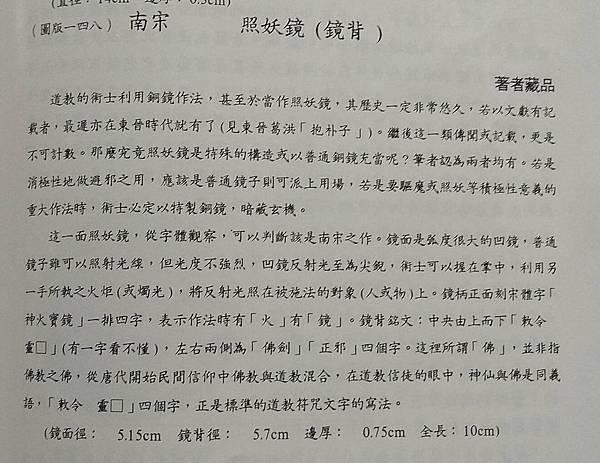 (直徑： 14cm 邊厚： 0.3cm)
(圖版一四八) 南宋 照妖鏡 (鏡背 )
著者藏品
道教的術士利用銅鏡作法，甚至於當作照妖鏡，其歷史一定非常悠久，若以文獻有記
載者，最遲亦在東晉時代就有了(見東晉葛洪「抱朴子」)。繼後這一類傳聞或記載，更是
不可計數。那麼究竟照妖鏡是特殊的構造或以普通銅鏡充當呢？筆者認為兩者均有。若是
消極性地做避邪之用，應該是普通鏡子則可派上用場，若是要驅魔或照妖等積極性意義的
重大作法時，術士必定以特製銅鏡，暗藏玄機。
這一面照妖鏡，從字體觀察，可以判斷該是南宋之作。鏡面是弧度很大的凹鏡，普通
鏡子雖可以照射光線，但光度不強烈，凹鏡反射光至為尖銳，術士可以握在掌中，利用另
一手所執之火炬(或燭光)，將反射光照在被施法的對象(人或物)上。鏡柄正面刻宋體字「
神火寶鏡」一排四字，表示作法時有「火」有「鏡」。鏡背銘文：中央由上而下「敕令
靈□」(有一字看不懂)，左右兩側為「佛劍」「正邪」四個字。這裡所謂「佛」，並非指
佛教之佛，從唐代開始民間信仰中佛教與道教混合，在道教信徒的眼中，神仙與佛是同義
語，「敕令 靈□」四個字，正是標準的道教符咒文字的寫法。
(鏡面徑： 5.15cm 鏡背徑： 5.7cm 邊厚： 0.75cm 全長：10cm)